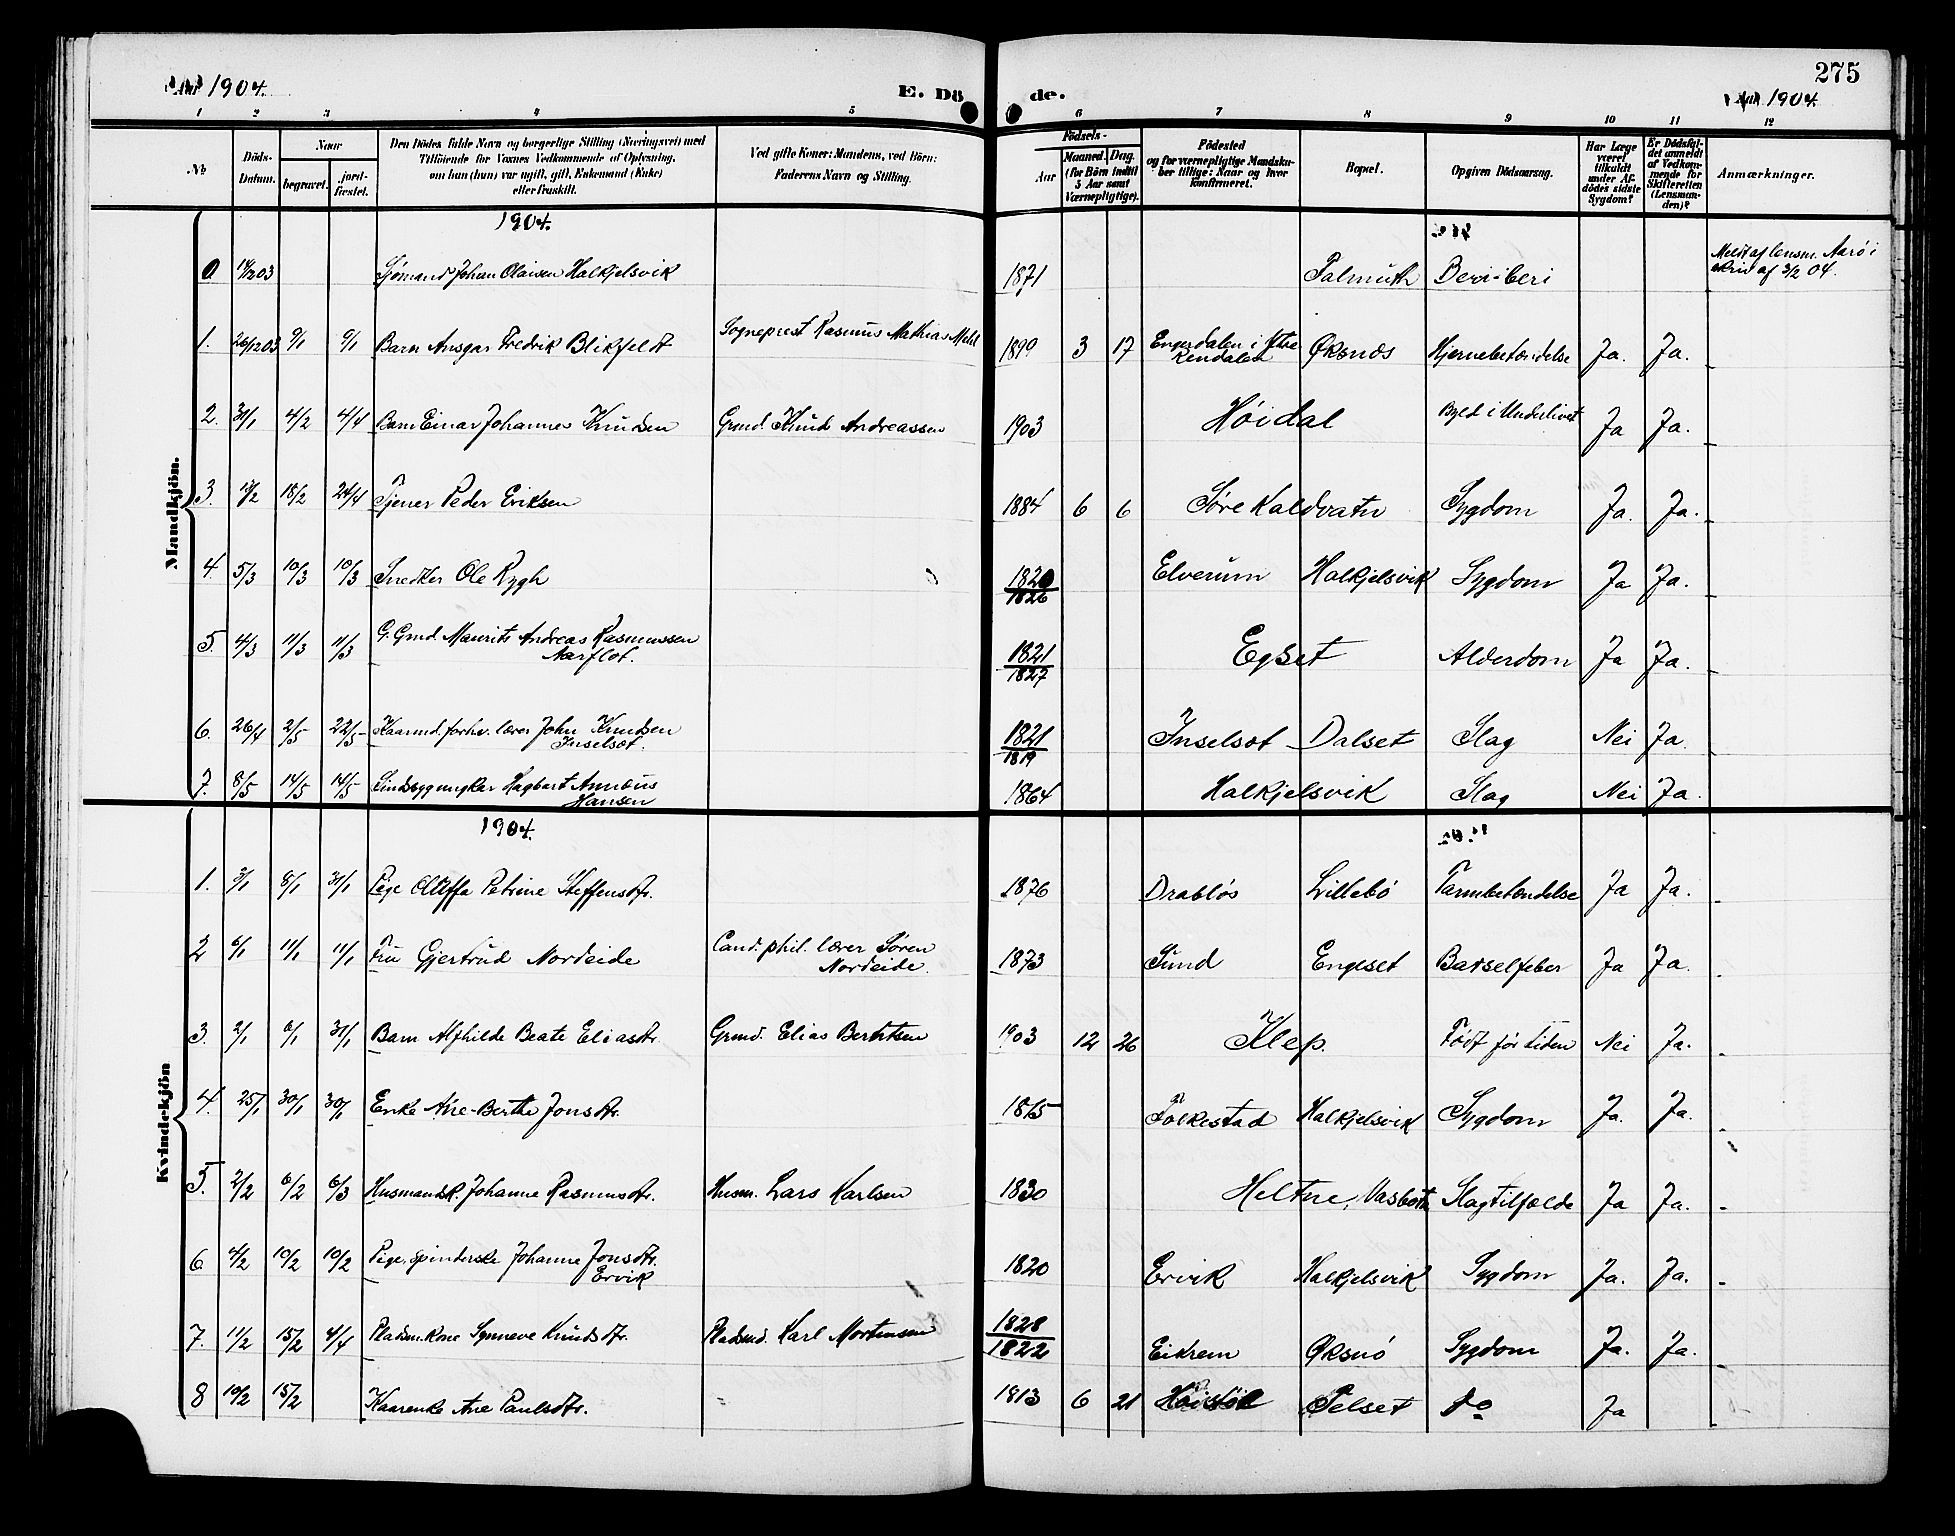 Aar 1904. E. Dö
de. Aar 1904. 275
1 2 3 4 5 6 7 8 9 10 11 12
No Döds-Datum. Naar begravet. jordfæstet. Den Dödes fulde Navn og borgerlige Stilling (Næringsvei) med Tilföiende for Voxnes Vedkommende af Oplysning, om han (hun) var ugift, gift, Enkemand (Enke) eller fraskilt. Ved gifte Koner: Mandens, ved Börn: Faderens Navn og Stilling.
Födsels- Aar Maaned. Dag. (for Börn indtil 5 Aar samt Værnepligtige). Födested og for værnepligtige Mandskaber tillige: Naar og hvor konfirmeret. Bopæl. Opgiven Dödsaarsag. Har Læge været tilkaldt under Afdödes sidste Sygdom? Er Dödsfaldet anmeldt af Vedkommende for Skifteretten (Lensmanden)? Anmærkninger.
Mandkjön.
1904.
0 14/12 03 Sjömand Johan Olaisen Halkjelsvik 1871 Falmuth Beri-beri Meldt af lensm. Aarö i skriv af 3/2 04.
1. 26/12 03 9/1 9/1 Barn Ansgar Fredrik Blikfeldt Sogneprest Rasmus Mathias Mehl 1899 3 17 Engerdalen i Ytre Rendalen Øksnæs Hjernebetændelse Ja. Ja.
2. 31/1 4/2 4/4 Barn Einar Johannes Knudsen Grmd. Knud Andreassen 1903 Höidal Byld i Underlivet Ja Ja.
3. 12/2 18/2 24/4 Tjener Peder Eriksen 1884 6 6 Söre Kaldvatn Sygdom Ja. Ja.
4. 5/3 10/3 10/3 Snedker Ole Rygh 1820 1826 Elverum Halkjelsvik Sygdom Ja Ja.
5. 4/3 11/3 11/3 G. Grmd. Maurits Andreas Rasmussen Aarflot. 1821 1827 Egset Alderdom Ja Ja.
6. 26/4 2/5 22/5 Kaarmd. forhv. lærer John Knudsen Inselset. 1821 1819 Inselset Dalset Slag Nei Ja.
7. 8/5 14/5 14/5 Sindssyg ungkar Hagbart Annbius Hansen 1864 Halkjelsvik Slag Nei Ja.
Kvindekjön
1904.
1. 3/1 8/1 31/1 Pige Oluffa Petrine Steffensdtr. 1876 Drabløs Lillebö Tarmbetændelse Ja Ja.
2 6/1 11/1 11/1 Fru Gjertrud Nordeide Cand. phil. lærer Søren Nordeide. 1873 Sund Engeset Barselfeber Ja Ja.
3. 2/1 6/1 31/1 Barn Alfhilde Beate Eliasdtr. Grmd. Elias Berntsen 1903 12 26 Klep. Födt för tiden Nei Ja.
4. 25/1 30/1 30/1 Enke Ane-Berthe Jonsdtr. 1815 Folkestad Halkjelsvik Sygdom Ja. Ja.
5. 2/2 6/2 6/3 Husmandsk. Johanne Rasmusdtr. Husm. Lars Karlsen 1830 Heltne, Vasbotn Slagtilfælde Ja Ja.
6 4/2 10/2 10/2 Pige, spinderske Johanne Jonsdtr. Ervik 1820 Ervik Halkjelsvik Sygdom Ja. Ja.
7. 11/2 15/2 4/4 Pladsm. kone Synneve Knudsdtr. Pladsmd. Karl Mortensen 1828 1822 Eikrem Øksnö Sygdom Ja. Ja.
8 10/2 15/2 Kaarenke Ane Paulsdtr. 1813 6 21 Velset do Ja